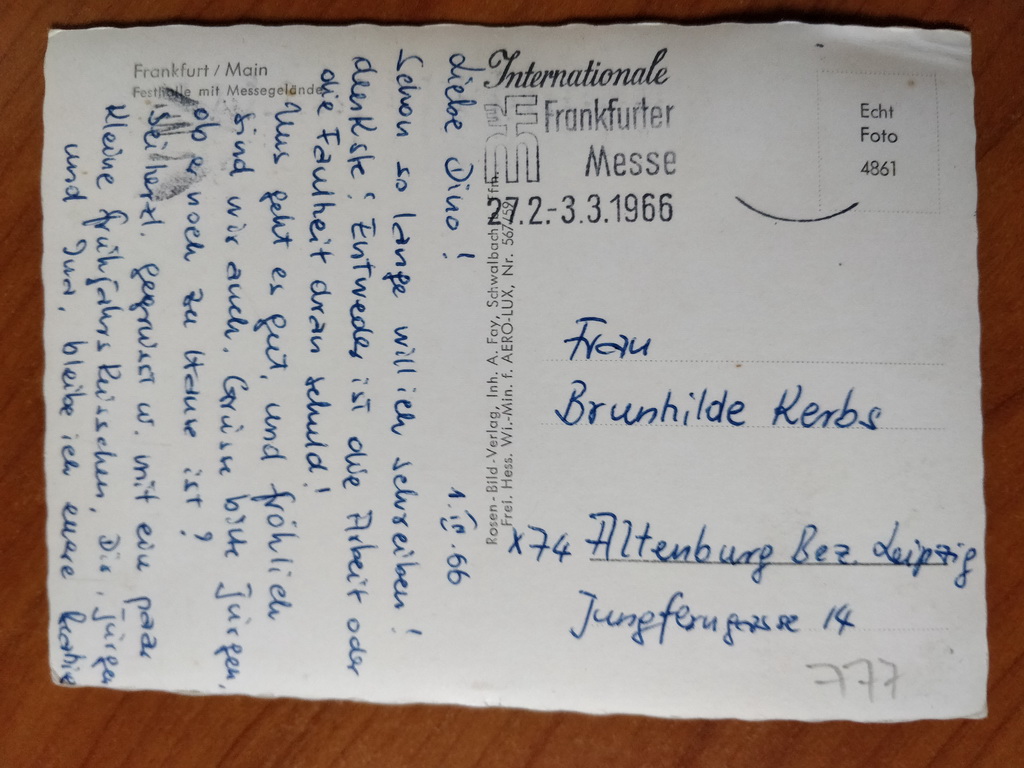 Frankfurt / Main
Festhalle mit Messegelände
1. III. 66
Liebe Dino!
Schon so lange will ich schreiben!
denkste! Entweder ist die Arbeit oder
die Faulheit dran schuld!
Uns geht es gut, und fröhlich
sind wir auch. Grüsse bitte Jürgen,
ob er noch zu Hause ist?
Sei herzl. gegrüsst u. mit ein paar
kleine Frühjahrsküsschen, Dir, Jürgen
und Jura, bleibe ich euere
Rosen-Bild-Verlag, Inh. A. Fay, Schwalbach
Frei. Hess. Wi.-Min. f. AERO-LUX, Nr. 567/59
Internationale
Frankfurter
Messe
27.2.-3.3.1966
Echt
Foto
4861
Frau
Brunhilde Kerbs
X74 Altenburg Bez. Leipzig
Jungferngasse 14
777